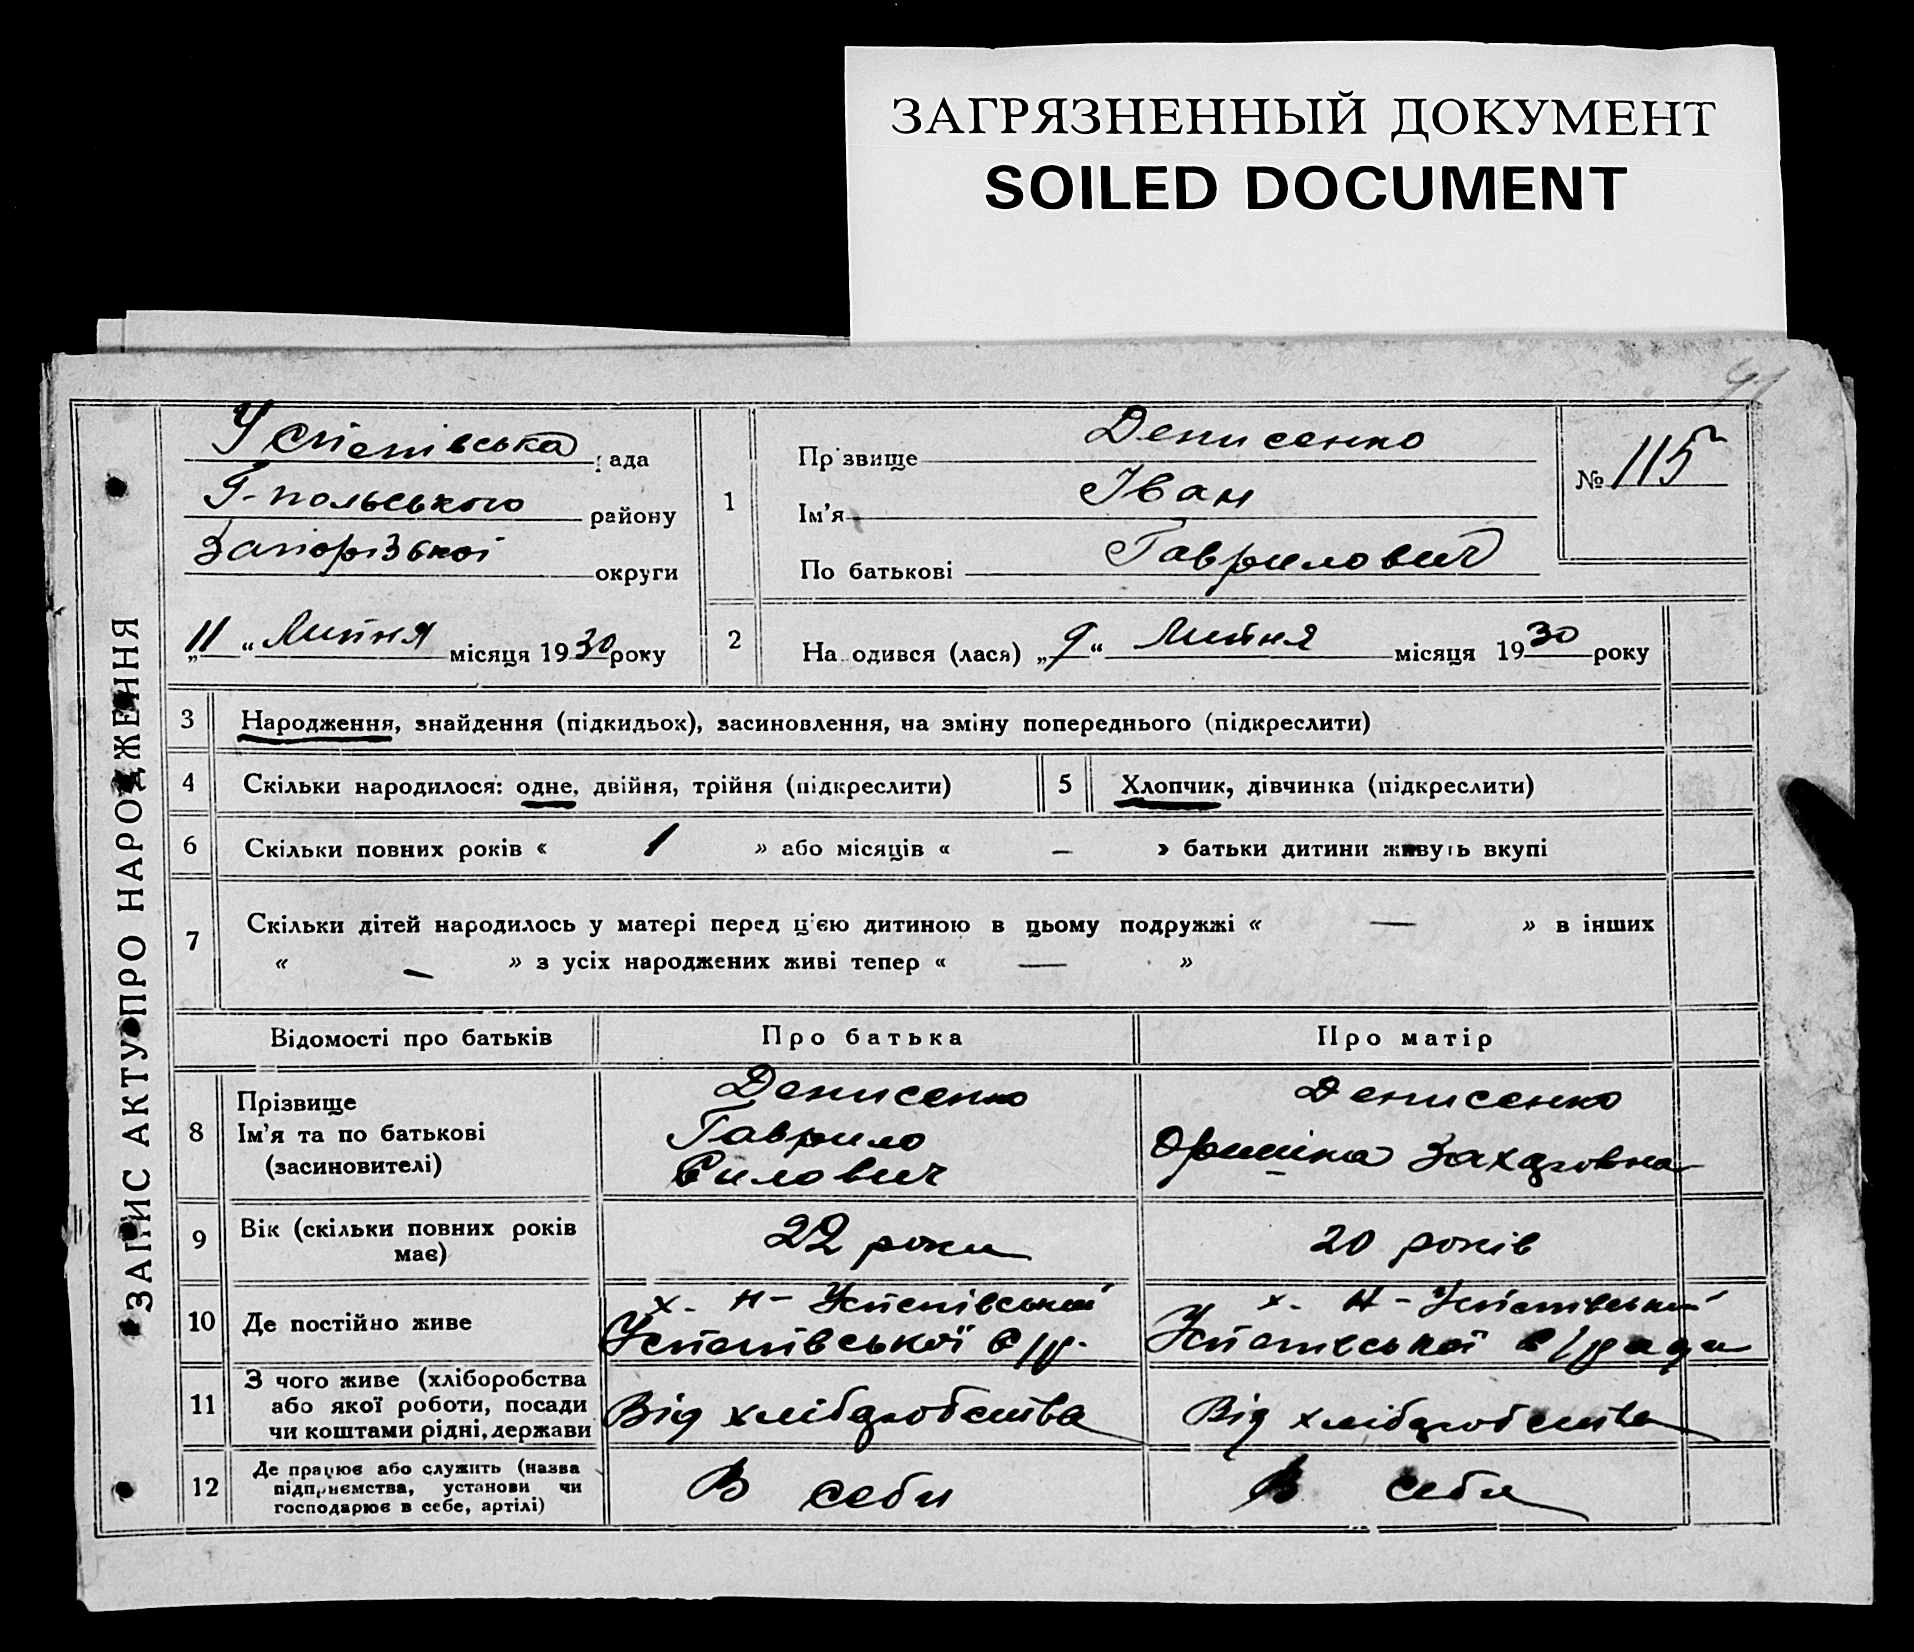 ЗАГРЯЗНЕННЫЙ ДОКУМЕНТ
SOILED DOCUMENT
ЗАПИС АКТУ ПРО НАРОДЖЕННЯ
Успенівська рада
Г-польського району
Запорізької округи
„11“ Липня місяця 1930 року
1
Прізвище Денисенко
Ім'я Іван
По батькові Гаврилович
№ 115
2
Народився (лася) „9“ Липня місяця 1930 року
3 Народження, знайдення (підкидьок), засиновлення, на зміну попереднього (підкреслити)
4 Скільки народилося: одне, двійня, трійня (підкреслити) 5 Хлопчик, дівчинка (підкреслити)
6 Скільки повних років « 1 » або місяців « — » батьки дитини живуть вкупі
7 Скільки дітей народилось у матері перед ц'єю дитиною в цьому подружжі « — » в інших
« — » з усіх народжених живі тепер « — »
Відомості про батьків Про батька Про матір
8 Прізвище
Ім'я та по батькові
(засиновителі)
Денисенко
Гаврило
Силович
Денисенко
Оришка Захаровна
9 Вік (скільки повних років
має)
22 роки
20 років
10 Де постійно живе
х. Н-Успенівський
Успенівської с/р.
х. Н-Успенівський
Успенівської с/ради
11 З чого живе (хліборобства
або якої роботи, посади
чи коштами рідні, держави
Від хліборобства
Від хліборобства
12 Де працює або служить (назва
підприємства, установи чи
господарює в себе, артілі)
В себи
В себи